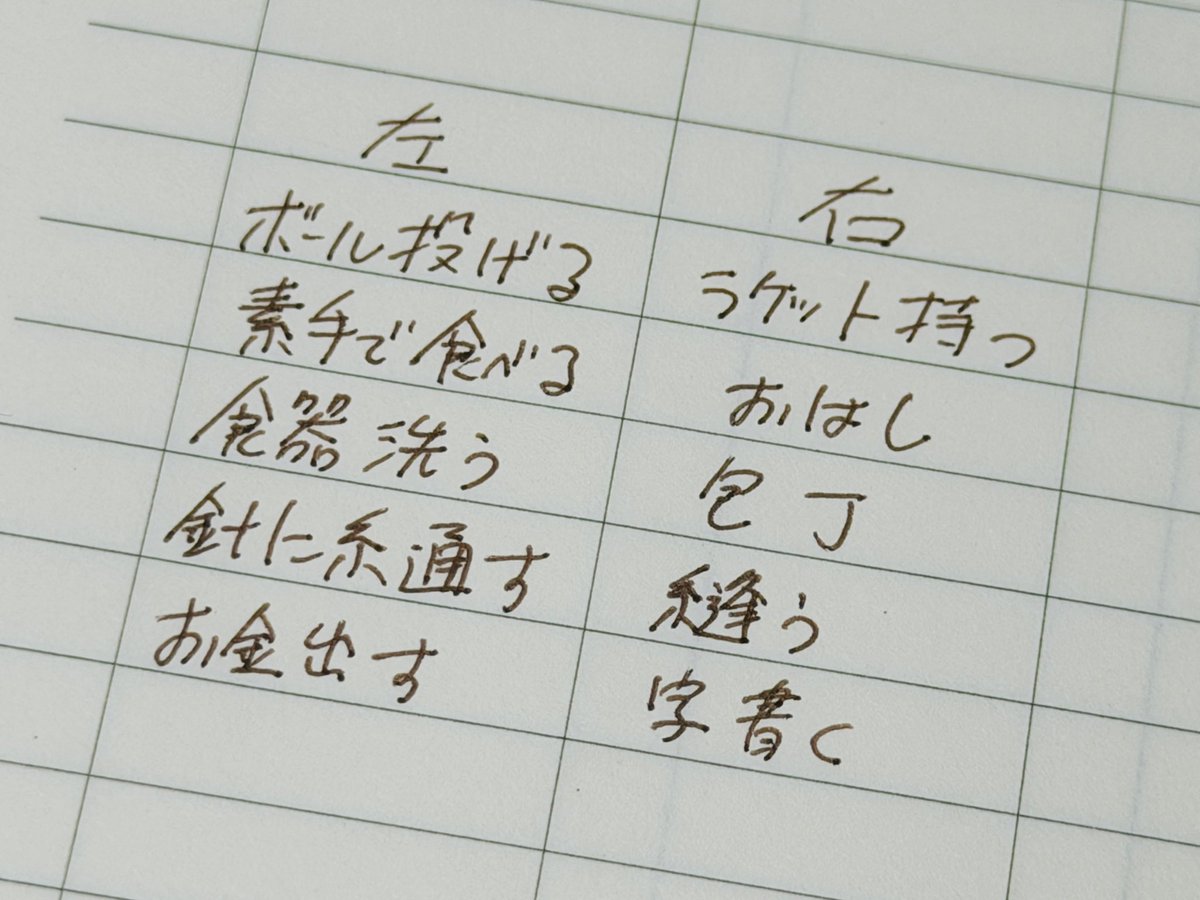 左
ボール投げる
素手で食べる
食器洗う
針に糸通す
お金出す
右
ラケット持つ
おはし
包丁
縫う
字書く